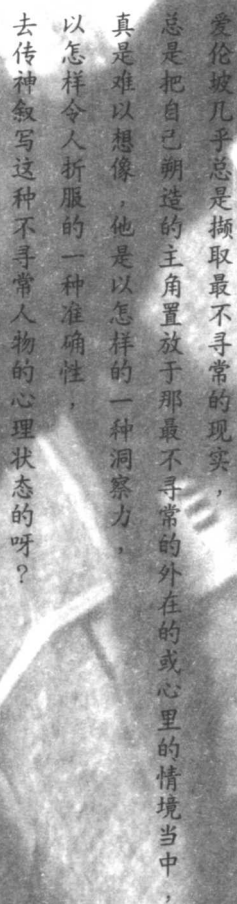 爱伦坡几乎总是撷取最不寻常的现实，
总是把自己朔造的主角置放于那最不寻常的外在的或心里的情境当中，
真是难以想像，他是以怎样的一种洞察力，
以怎样令人折服的一种准确性，
去传神叙写这种不寻常人物的心理状态的呀？